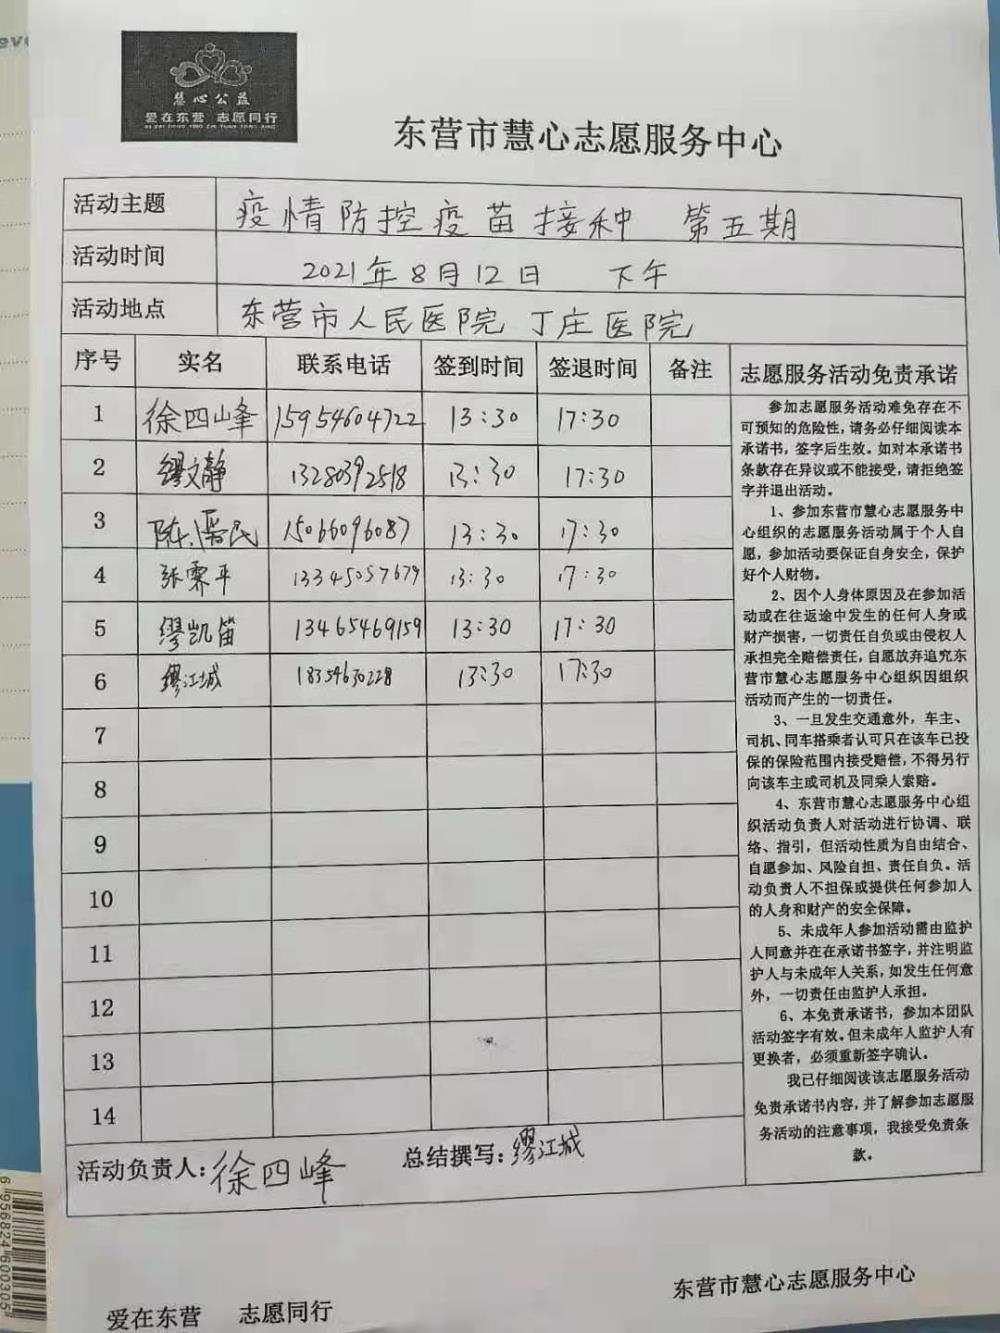 慧心公益
爱在东营 志愿同行
AI ZAI DONG YING ZHI YUAN TONG XING
东营市慧心志愿服务中心
活动主题 疫情防控疫苗接种 第五期
活动时间 2021年8月12日 下午
活动地点 东营市人民医院 丁庄医院
序号 实名 联系电话 签到时间 签退时间 备注
1 徐四峰 15954604722 13:30 17:30
2 缪文静 13280392518 13:30 17:30
3 15066096087 13:30 17:30
4 张霖平 13345057679 13:30 17:30
5 缪凯笛 13465469159 13:30 17:30
6 缪江城 18354630228 13:30 17:30
7
8
9
10
11
12
13
14
志愿服务活动免责承诺
参加志愿服务活动难免存在不
可预知的危险性，请务必仔细阅读本
承诺书，签字后生效。如对本承诺书
条款存在异议或不能接受，请拒绝签
字并退出活动。
1、参加东营市慧心志愿服务中
心组织的志愿服务活动属于个人自
愿，参加活动要保证自身安全，保护
好个人财物。
2、因个人身体原因及在参加活
动或在往返途中发生的任何人身或
财产损害，一切责任自负或由侵权人
承担完全赔偿责任，自愿放弃追究东
营市慧心志愿服务中心组织因组织
活动而产生的一切责任。
3、一旦发生交通意外，车主、
司机、同车搭乘者认可只在该车已投
保的保险范围内接受赔偿，不得另行
向该车主或司机及同乘人索赔。
4、东营市慧心志愿服务中心组
织活动负责人对活动进行协调、联
络、指引，但活动性质为自由结合、
自愿参加、风险自担、责任自负。活
动负责人不担保或提供任何参加人
的人身和财产的安全保障。
5、未成年人参加活动需由监护
人同意并在在承诺书签字，并注明监
护人与未成年人关系，如发生任何意
外，一切责任由监护人承担。
6、本免责承诺书，参加本团队
活动签字有效。但未成年人监护人有
更换者，必须重新签字确认。
我已仔细阅读该志愿服务活动
免责承诺书内容，并了解参加志愿服
务活动的注意事项，我接受免责条
款。
活动负责人：徐四峰 总结撰写：缪江城
爱在东营 志愿同行
东营市慧心志愿服务中心
6 956824 600305